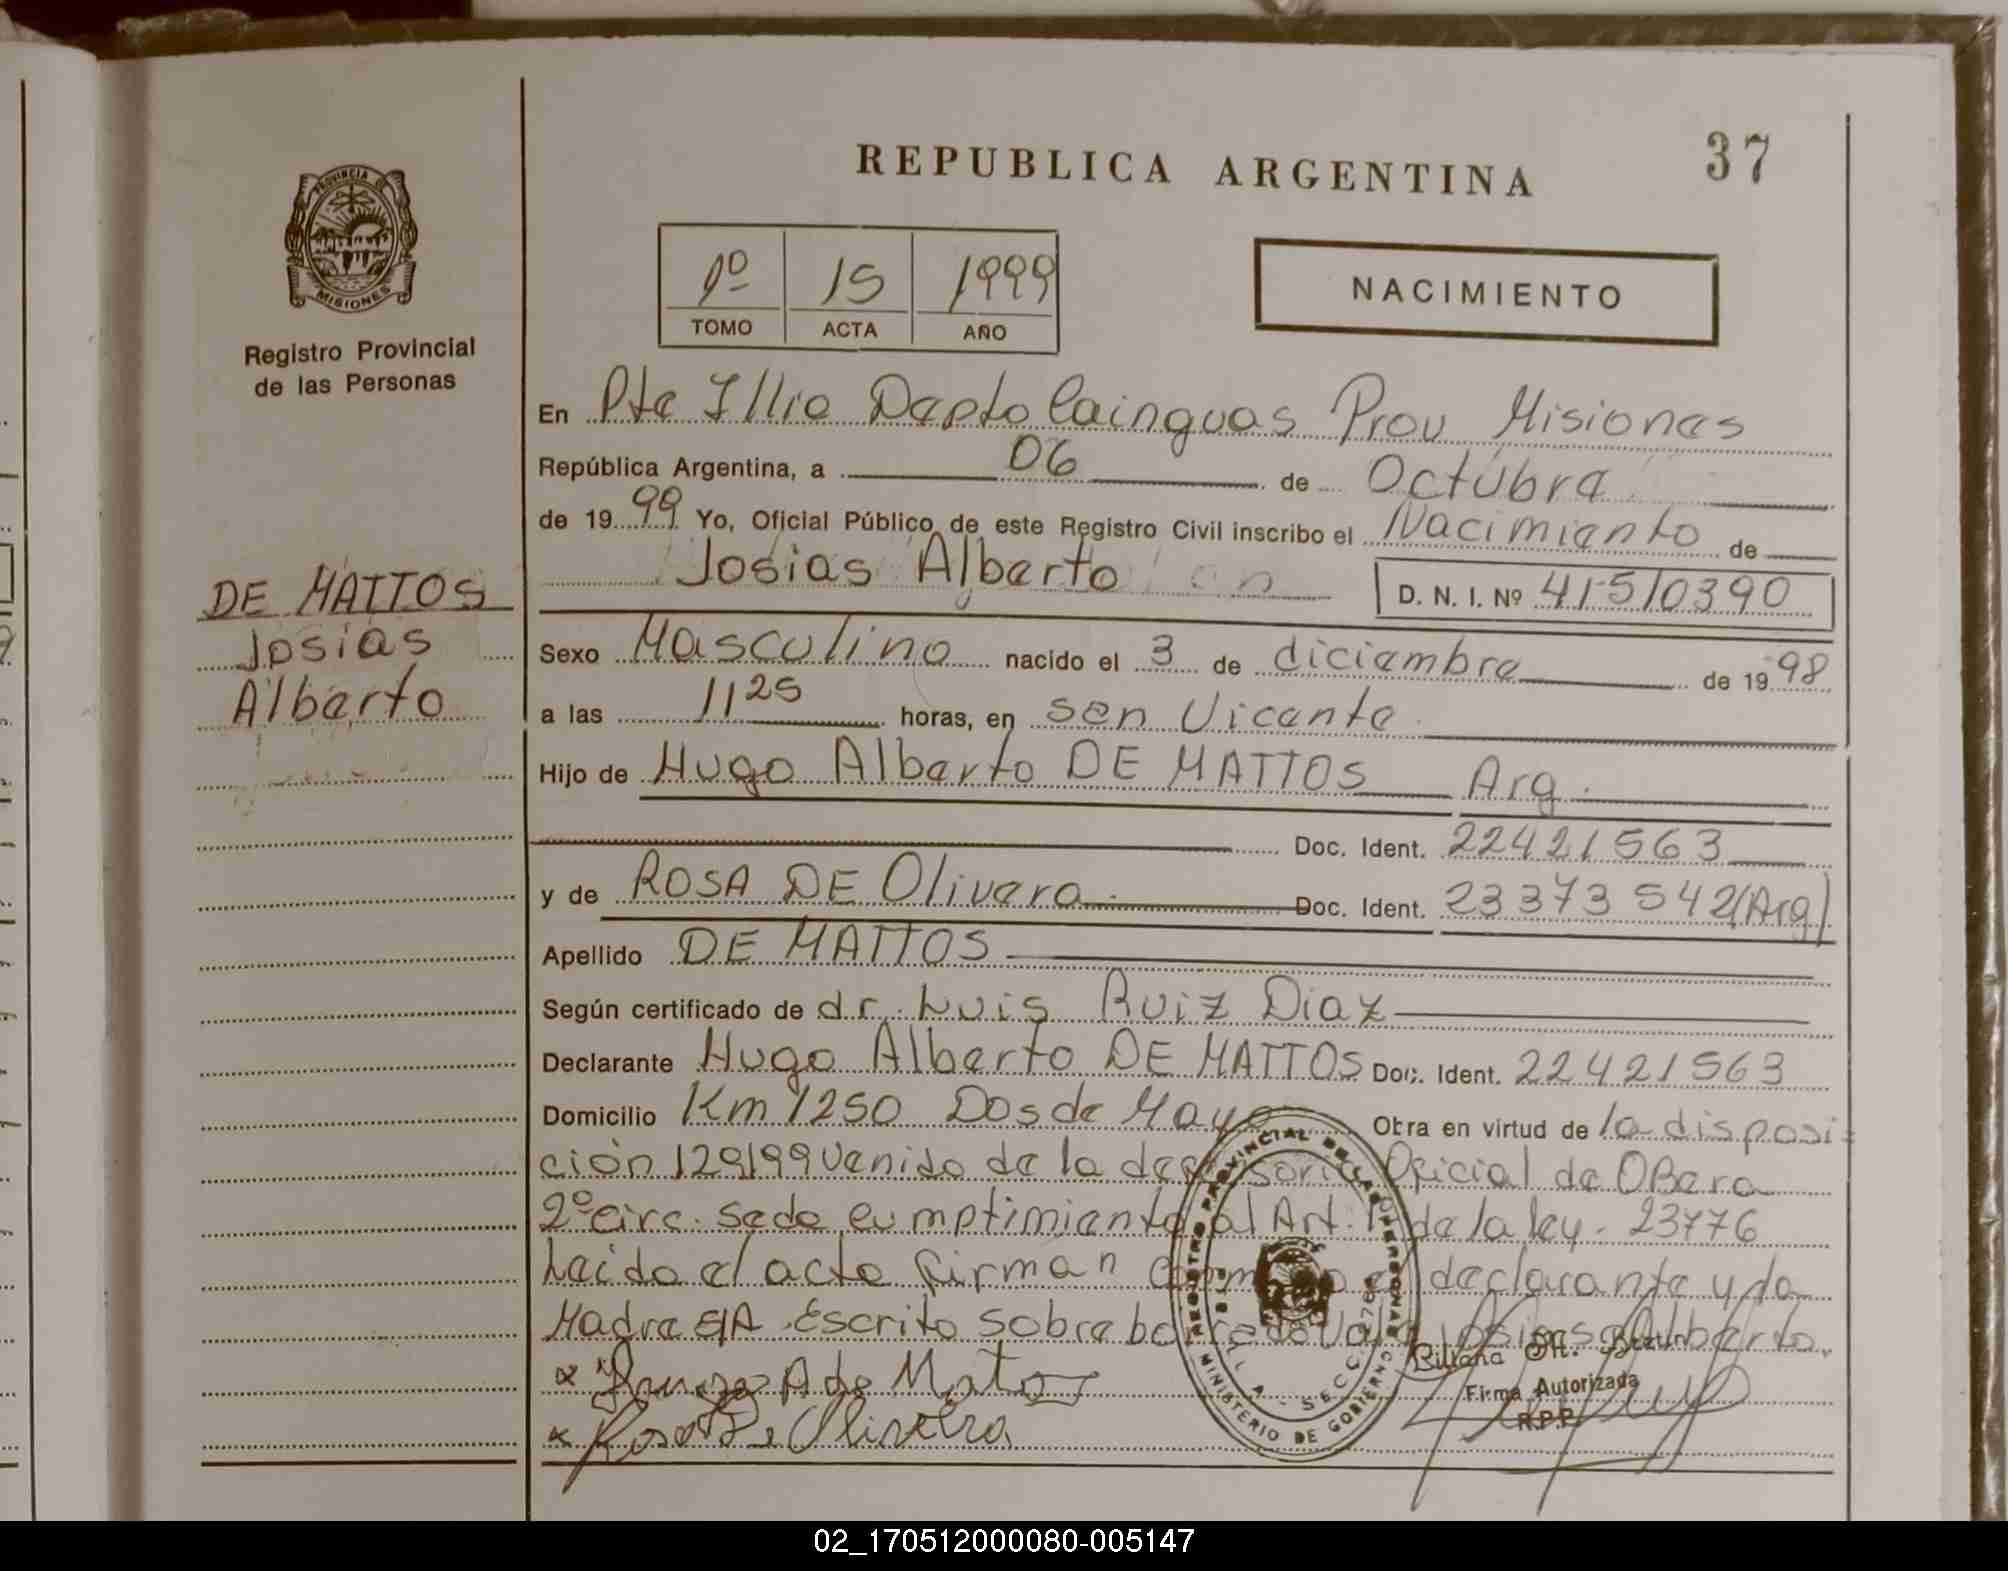 REPUBLICA ARGENTINA
37
PROVINCIA DE
MISIONES
Registro Provincial
de las Personas
1º 15 1999
TOMO ACTA AÑO
NACIMIENTO
En Pte Illia Depto Cainguas Prov Misiones
República Argentina, a 06 de Octubre
de 1999 Yo, Oficial Público de este Registro Civil inscribo el Nacimiento de
Josias Alberto
D. N. I. Nº 41510390
DE MATTOS
Josias
Alberto
Sexo Masculino nacido el 3 de diciembre de 1998
a las 11 25 horas, en San Vicente
Hijo de Hugo Alberto DE MATTOS Arg.
Doc. Ident. 22421563
y de ROSA DE Olivera Doc. Ident. 23373542 (Arg)
Apellido DE MATTOS
Según certificado de dr. Luis Ruiz Diaz
Declarante Hugo Alberto DE MATTOS Doc. Ident. 22421563
Domicilio Km 1250 Dos de Mayo Obra en virtud de la disposi
ción 129/99 Venido de la Oficial de OBera
2º circ. se da cumptimiento al Art. 1 de la ley. 23776
Leido el acto firman declarante y la
Madre Escrito sobre borrado Vale Josias Alberto.
A de Matos
Rosa De Oliveira
REGISTRO PROVINCIAL DE LAS PERSONAS
MINISTERIO DE GOBIERNO
SECC. 2768
Firma Autorizada
R.P.P.
02_170512000080-005147